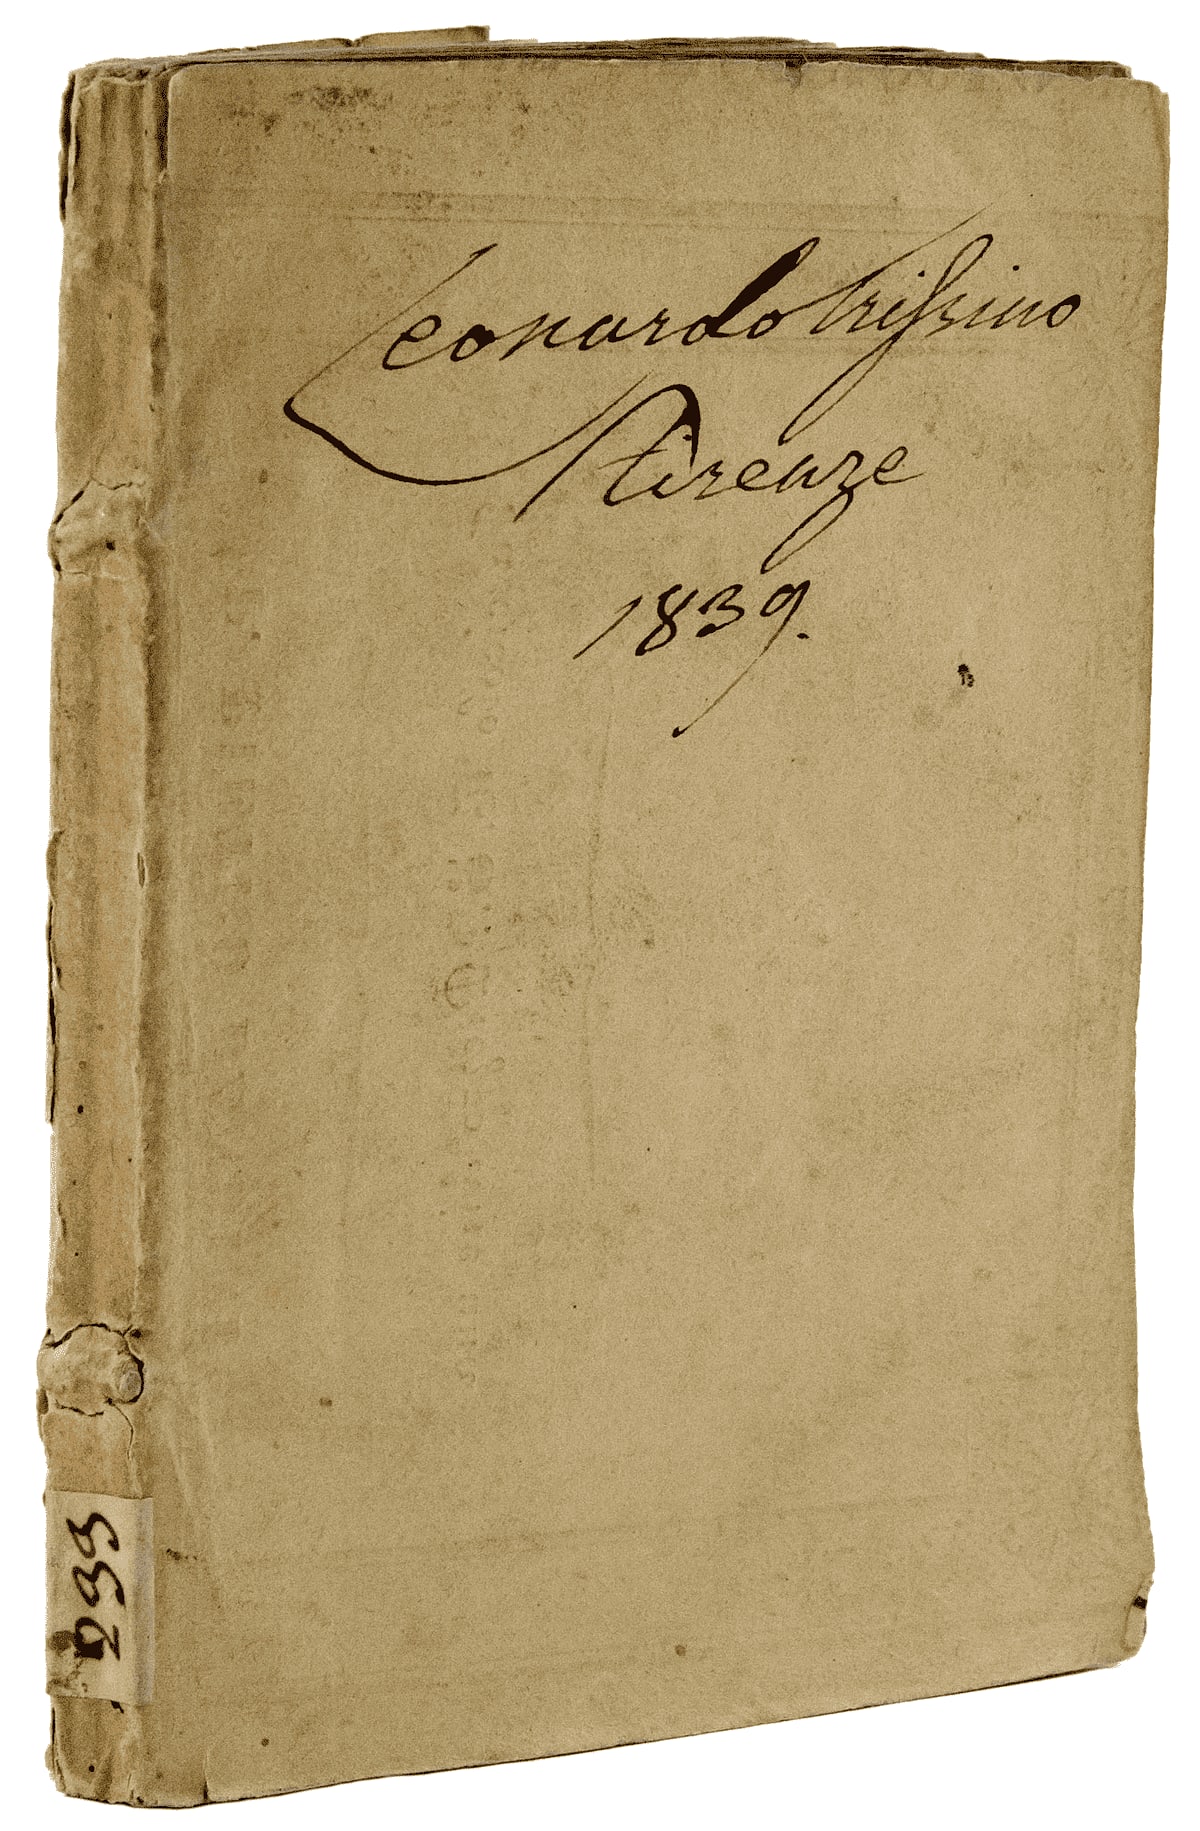 Leonardo Trissino
Firenze
1839.
233